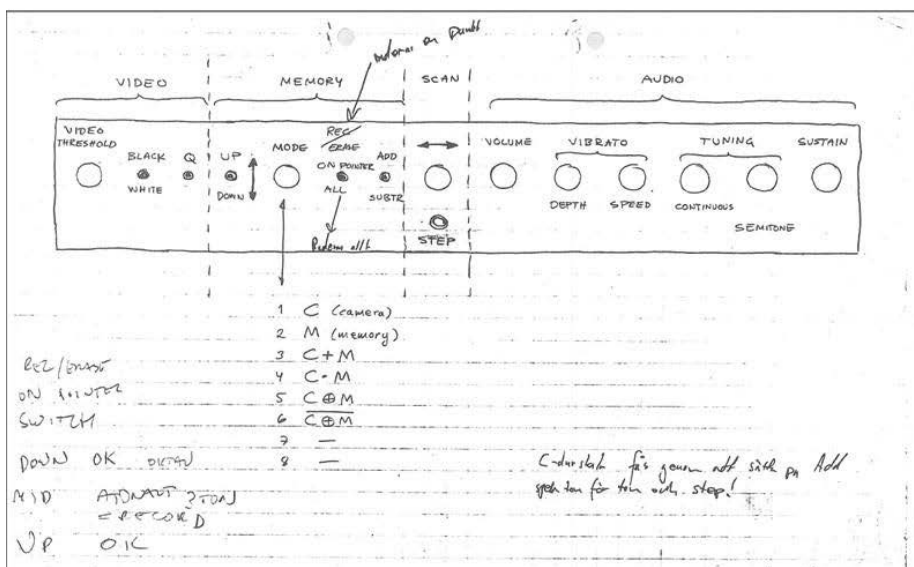 on punkt
VIDEO MEMORY SCAN AUDIO
VIDEO THRESHOLD
BLACK
WHITE
Q
UP
DOWN
MODE
REC/ERASE
ON POINTER
ALL
ADD
SUBTR
STEP
VOLUME
VIBRATO
DEPTH SPEED
TUNING
CONTINUOUS
SEMITONE
SUSTAIN
allt
1 C (camera)
2 M (memory)
3 C+M
4 C·M
5 C⊕M
6 C̅⊕̅M̅
7 —
8 —
REC/ERASE
ON POINTER
SWITCH
DOWN OK
MID
= RECORD
UP OK
C-durskala fås genom att sätta på Add
för ton och step!